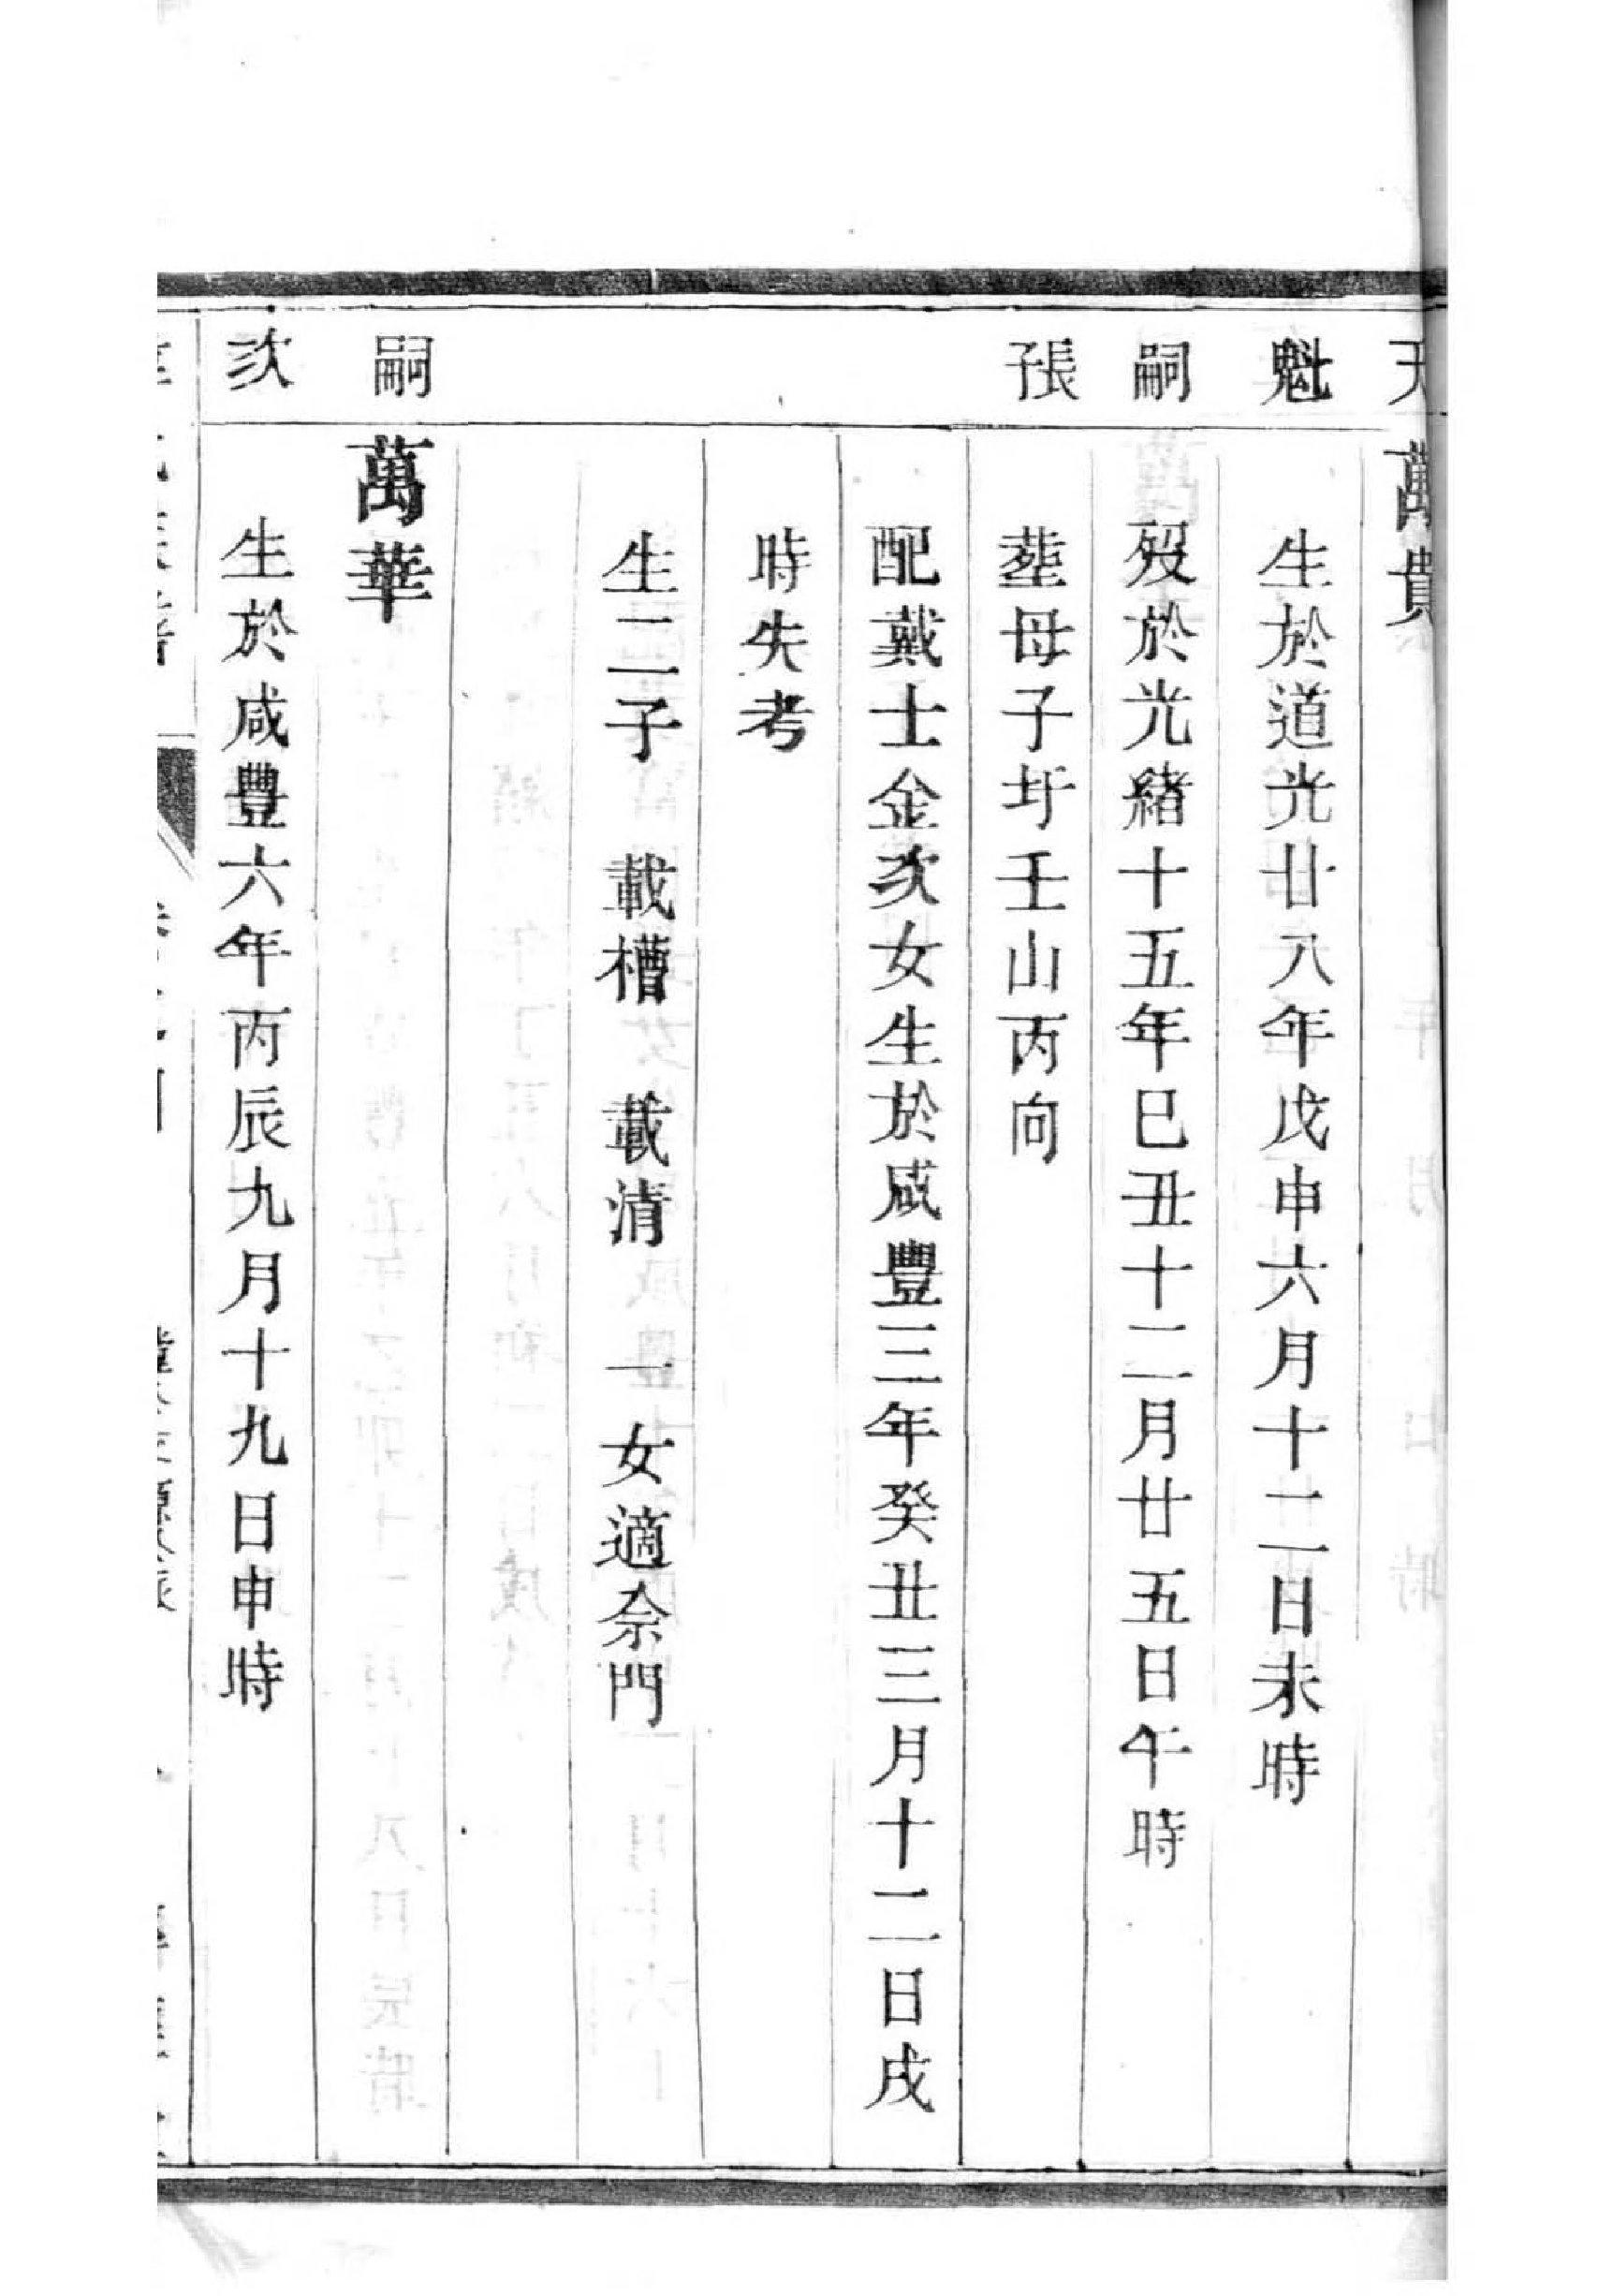 天
萬貴
魁
生於道光廿八年戊申六月十二日未時
嗣
歿於光緒十五年巳丑十二月廿五日午時
張子
塟母子圩壬山丙向
配戴士金次女生於咸豐三年癸丑三月十二日戌
時失考
生二子 載槽 載清 一女適佘門
嗣
萬華
次
生於咸豐六年丙辰九月十九日申時